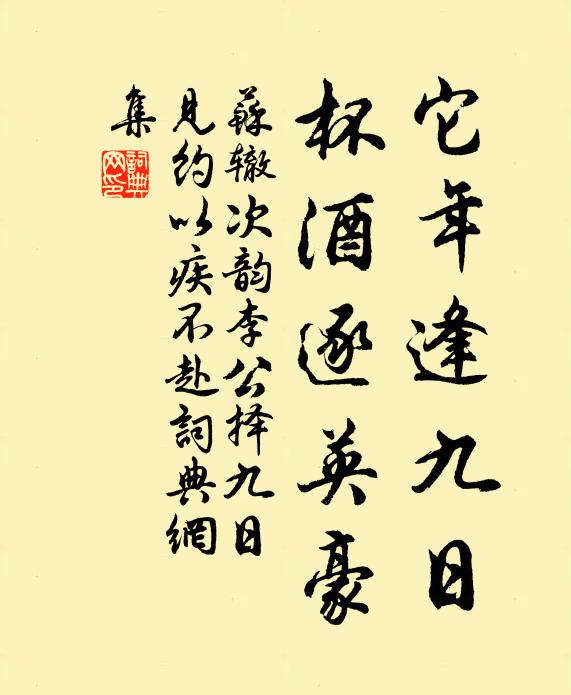 它年逢九日
杯酒逐英豪
蘇辙次韵李公择九日
見约以疾不赴詞典網
集
詞典网印